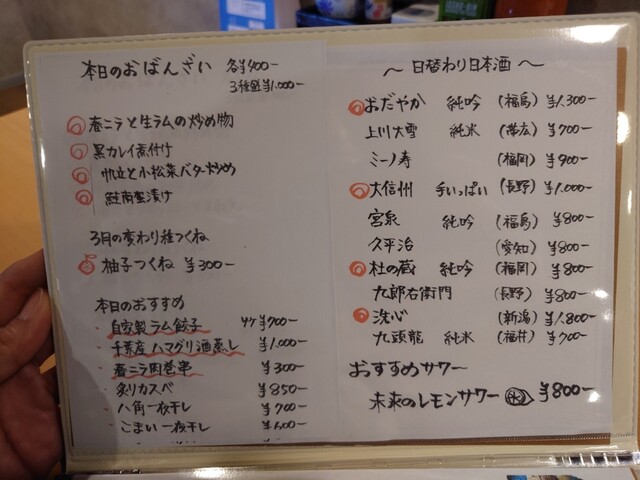 本日のおばんざい 各¥400-
3種盛¥1,000-
春ニラと生ラムの炒め物
黒カレイ煮付け
帆立と小松菜バター炒め
鮭南蛮漬け
3月の変わり種つくね
柚子つくね ¥300-
本日のおすすめ
自家製ラム餃子 4ケ¥700-
千葉産ハマグリ酒蒸し ¥1,000-
春ニラ肉巻串 ¥300-
炙りカスベ ¥850-
八角一夜干し ¥700-
こまい一夜干し ¥600-
～ 日替わり日本酒 ～
おだやか 純吟 (福島) ¥1,300-
上川大雪 純米 (帯広) ¥700-
三一ノ寿 (福岡) ¥900-
大信州 手いっぱい (長野) ¥1,000-
宮泉 純吟 (福島) ¥800-
久平治 (愛知) ¥800-
杜の蔵 純吟 (福岡) ¥800-
九郎右衛門 (長野) ¥800-
洗心 (新潟) ¥1,800-
九頭龍 純米 (福井) ¥700-
おすすめサワー
未来のレモンサワー ¥800-